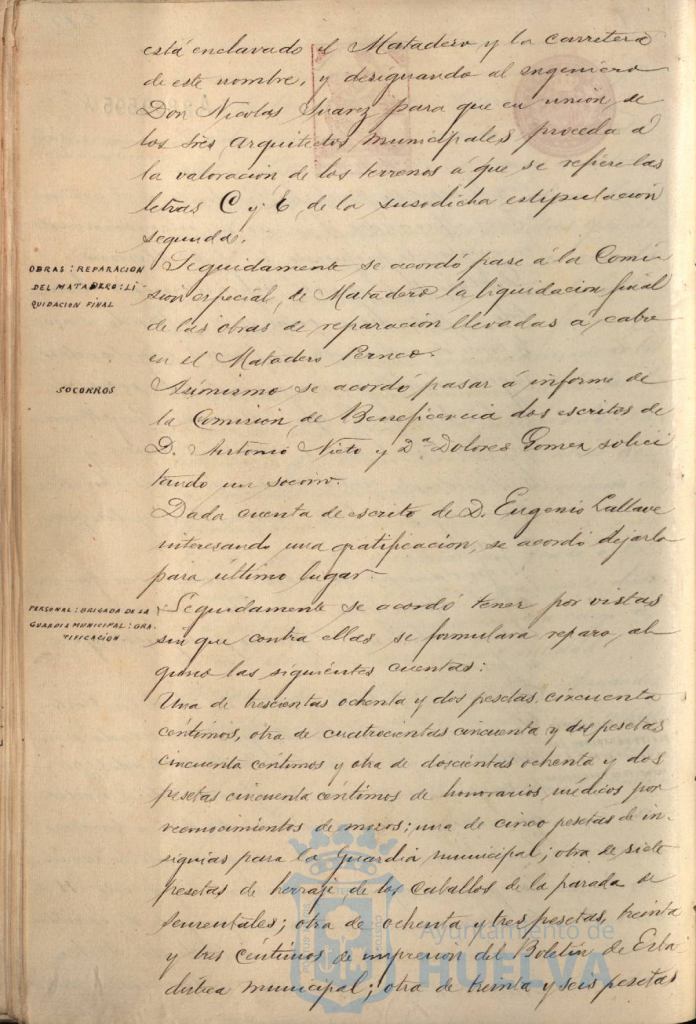 está enclavado el Matadero y la carretera
de este nombre, y designando al ingeniero
Don Nicolas Suarez para que en unión de
los tres Arquitectos municipales, proceda á
la valoración de los terrenos á que se refiere las
letras C y E, de la susodicha estipulación
segunda.
OBRAS: REPARACION
DEL MATADERO: LI-
QUIDACION FINAL
Seguidamente se acordó pase á la Comi-
sión especial, de Matadero la liquidación final
de las obras de reparación llevadas a cabo
en el Matadero Perneo.
SOCORROS
Asimismo se acordó pasar á informe de
la Comisión, de Beneficencia dos escritos de
D. Antonio Nieto y Dª Dolores Gomez solici
tando un socorro.
Dada cuenta de escrito de D. Eugenio Lallave
interesando una gratificación, se acordó dejarlo
para último lugar.
PERSONAL: BRIGADA DE LA
GUARDIA MUNICIPAL: GRA-
TIFICACIÓN
Seguidamente se acordó tener por vistas
sin que contra ellas se formulara reparo, al
guno las siguientes cuentas:
Una de trescientas ochenta y dos pesetas, cincuenta
céntimos, otra de cuatrocientas cincuenta y dos pesetas
cincuenta céntimos y otra de doscientas ochenta y dos
pesetas cincuenta céntimos de honorarios, médicos por
reconocimientos de mozos; una de cinco pesetas de in-
signias para la Guardia municipal; otra de siete
pesetas de herraje de los caballos de la parada de
sementales; otra de ochenta y tres pesetas, treinta
y tres céntimos de impresión del Boletín de Esta
dística municipal; otra de treinta y seis pesetas
Ayuntamiento de
HUELVA